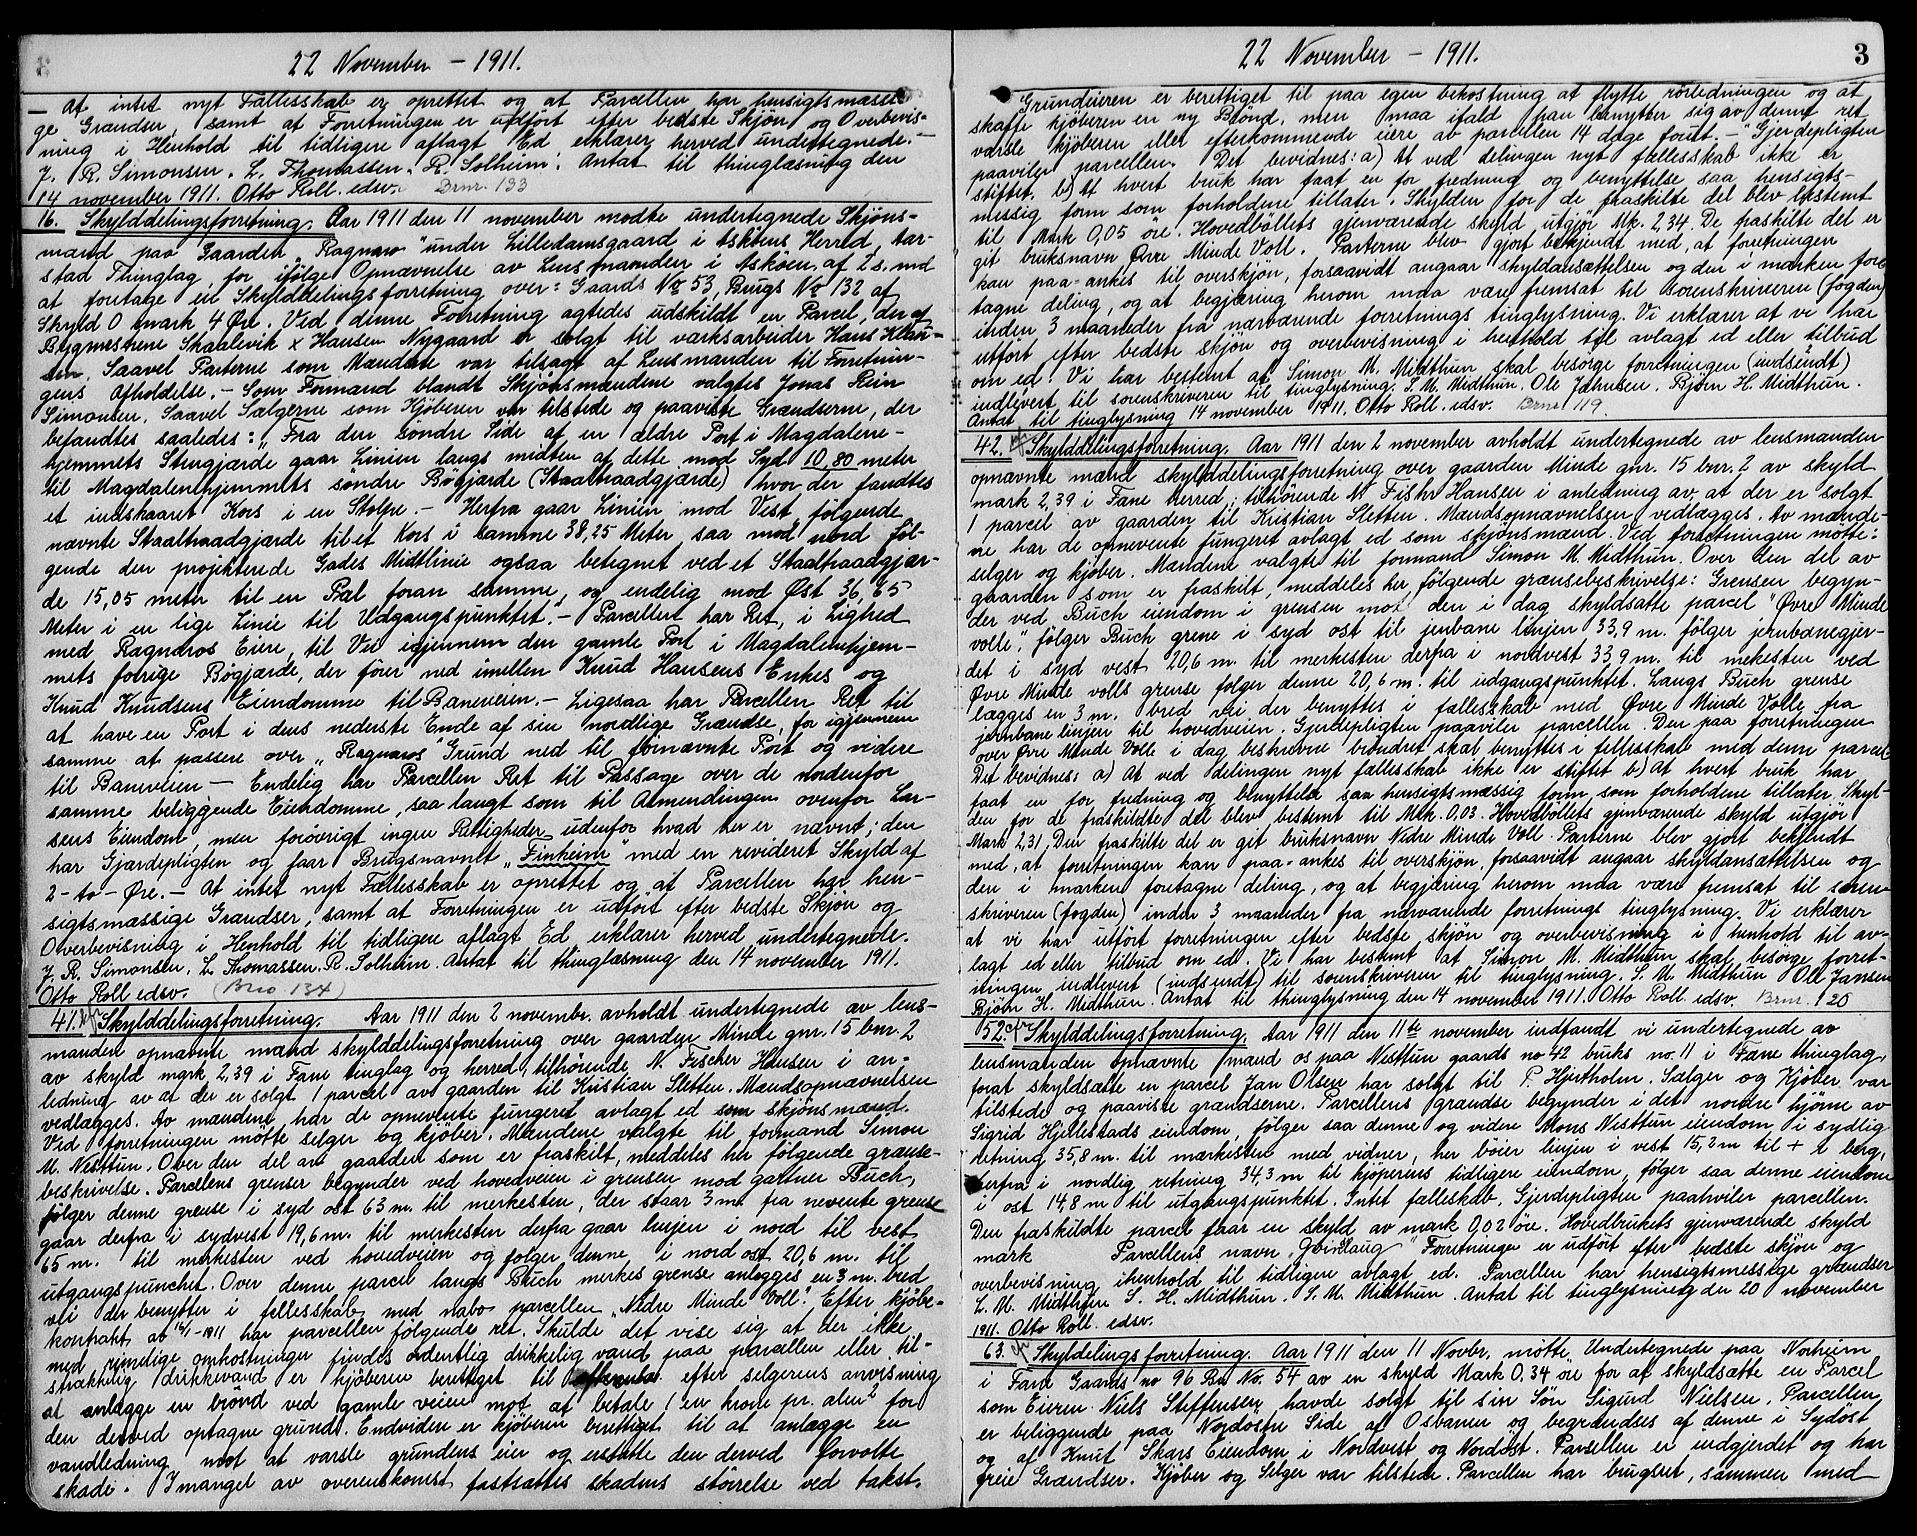 22 November - 1911.
- At intet nyt Fællesskab er oprettet og at Parcellen har hensigtsmæssi-
ge Grændser, samt at Forretningen er udført efter bedste Skjøn og Overbevis-
ning i Henhold til tidligere aflagt Ed erklærer herved undertegnede. -
J. R. Simonsen. L. Thomassen. R. Solheim. Antat til thinglæsning den
14 november 1911. Otto Roll. edsv. Brnr. 133
16. Skylddelingsforretning. Aar 1911 den 11 november mødte undertegnede Skjøns-
mænd paa Gaarden "Ragnaro" under Lilledamsgaard i Askøens Herred, Aar-
stad Thinglag, for ifølge Opnævnelse av Lensmanden i Askøen af 2 s. md
at foretage en Skylddelingsforretning over: Gaards No 53, Brugs No 132 af
Skyld 0 mark 4 Øre. Ved denne Forretning agtedes udskildt en Parcel, der af
Bygmestrene Skaalevik & Hansen Nygaard er solgt til værksarbeider Hans Klau-
sen. Saavel Parterne som Mændene var tilsagt af Lensmanden til Forretnin-
gens Afholdelse. - Som Formand blandt Skjønsmændene valgtes Jonas Rein
Simonsen. Saavel Sælgerne som Kjøberen var tilstede og paaviste Grændserne, der
befandtes saaledes: "Fra den søndre Side af en ældre Port i Magdalene-
hjemmets Stengjærde gaar Linien langs midten af dette mod Syd 10,80 meter
til Magdalenehjemmets søndre Bøgjærde (Staaltraadgjærde) hvor der fandtes
et indskaaret Kors i en Stolpe. - Herfra gaar Linien mod Vest følgende
nævnte Staaltraadgjærde til et Kors i samme 38,25 Meter, saa mod nord føl-
gende den projekterede Gades Midtlinie ogsaa betegnet ved et Staaltraadgjær-
de 15,05 meter til en Pæl foran samme, og endelig mod Øst 36,65
Meter i en lige Linie til Udgangspunktet. - Parcellen har Ret, i Lighed
med Ragnaros Eiere, til Vei igjennem den gamle Port i Magdalenehjem-
mets forrige Bøgjærde, der fører ned imellem Knud Hansens Enkes og
Knud Knudsens Eiendomme til Baneveien. - Ligesaa har Parcellen Ret til
at have en Port i dens nederste Ende af sin nordlige Grændse, for igjennem
samme at passere over "Ragnaros" Grund ned til fornævnte Port og videre
til Baneveien - Endelig har Parcellen Ret til Passage over de nordenfor
samme beliggende Eiendomme, saa langt som til Almendingen ovenfor Lar-
sens Eiendom, men forøvrigt ingen Rettigheder udenfor hvad her er nævnt; den
har Gjærdepligten og faar Brugsnavnet "Finheim" med en revideret Skyld af
2 - to - Øre. - At intet nyt Fællesskab er oprettet og at Parcellen har hen-
sigtsmæssige Grændser, samt at Forretningen er udført efter bedste Skjøn og
Overbevisning i Henhold til tidligere aflagt Ed, erklærer herved undertegnede.
J. R. Simonsen. L. Thomassen. R. Solheim. Antat til thinglæsning den 14 november 1911.
Otto Roll edsv. (Brno 134)
41. Skylddelingsforretning. Aar 1911 den 2 november avholdt undertegnede av lens-
manden opnævnte mænd skylddelingsforretning over gaarden Minde gnr. 15 bnr. 2
av skyld mark 2,39 i Fane tinglag og herred, tilhørende N. Fischer Hansen i an-
ledning av at der er solgt 1 parcel av gaarden til Kristian Sletten. Mændsopnævnelsen
vedlægges. Av mændene har de opnevnte fungeret avlagt ed som skjønsmænd.
Ved forretningen møtte selger og kjøber. Mændene valgte til formand Simon
M. Nesttun. Over den del av gaarden som er fraskilt, meddeles her følgende grænse-
beskrivelse. Parcellens grenser begynder ved hovedveien i grensen mod gartner Buch,
følger denne grense i syd ost 63 m. til merkesten, der staar 3 m. fra nevnte grense
gaar derfra i sydvest 19,6 m. til merkesten derfra gaar linjen i nord til vest
65 m. til merkesten ved hovedveien og følger denne i nord ost 20,6 m. til
utgangspunchet. Over denne parcel langs Buch merkes grense anlegges en 3 m. bred
vei der benyttes i fellesskab med nabo parcellen "Nedre Minde Voll". Efter kjøbe-
kontrakt ab 14/1-1911 har parcellen følgende ret. Skulde det vise sig at der ikke
med rimelige omkostninger findes ordentlig drikkelig vand paa parcellen eller til-
strækkelig drikkevand er kjøberen berettiget til efter selgerens anvisning
at anlægge en brønd ved gamle veien mot at betale 1 en krone pr. alen² for
den derved optagne grund. Endvidere er kjøberen berettiget til at anlægge en
vandledning mot at varsle grundens eier og erstatte den derved forvolte
skade. I mangel av overenskomst fastsættes skadens størrelse ved takst.
22 November - 1911. 3
Grundeieren er berettiget til paa egen bekostning at flytte rørledningen og at
skaffe kjøberen en ny Brønd, men maa ifald han benytter sig av denne ret
varsle kjøberen eller efterkommende eiere av parcellen 14 dage forut. - "Gjerdepligten
paaviler parcellen. Det bevidnes: a) At ved delingen nyt fællesskab ikke er
stiftet. b) At hvert bruk har faat en for fredning og benyttelse saa hensigts-
messig form som forholdene tillater. Skylden for de fraskilte del blev bestemt
til Mark 0,05 øre. Hovedbøllets gjenværende skyld utgjør Mk. 2,34. De fraskilte del er
git bruksnavn Øvre Minde Voll. Parterne blev gjort bekjendt med, at forretningen
kan paa-ankes til overskjøn, forsaavidt angaar skyldansættelsen og den i marken fore
tagne deling, og at begjæring herom maa være fremsat til sorenskriveren (fogden)
inden 3 maaneder fra nærværende forretnings tinglysning. Vi erklærer at vi har
utført efter bedste skjøn og overbevisning i henhold til avlagt ed eller tilbud
om ed. Vi har bestemt at Simon M. Midthun skal besørge forretningen (indsendt)
indlevert til sorenskriveren til tinglysning. S. M. Midthun. Ole Johnsen. Bjørn H. Midthun.
Antat til tinglysning 14 november 1911. Otto Roll. edsv. Brnr 119.
42. Skylddelingsforretning. Aar 1911 den 2 november avholdt undertegnede av lensmanden
opnævnte mænd skylddelingsforretning over gaarden Minde gnr. 15 bnr. 2 av skyld
mark 2,39 i Fane herred, tilhørende N. Fishr Hansen i anledning av at der er solgt
1 parcel av gaarden til Kristian Sletten. Mændsopnævnelsen vedlægges. Av mænde-
ne har de opnevnte fungeret avlagt ed som skjønsmænd. Ved forretningen møtte:
selger og kjøber. Mændene valgte til formand Simon M. Midthun. Over den del av
gaarden som er fraskilt, meddeles her følgende grænsebeskrivelse: Grensen begyn-
der ved Buch eiendom i grensen mot den i dag skyldsatte parcel "Øvre Minde
volle", følger Buch grene i syd ost til jenbane linjen 33,9 m. følger jernbanegjer-
det i syd vest 20,6 m. til merkesten derfra i nordvest 33,9 m. til mekesten ved
Øvre Minde volls grense følger denne 20,6 m. til udgangspunktet. Langs Buch grense
lægges en 3 m. bred vei der benyttes i fællesskab med Øvre Minde Volle fra
jernbane linjen til hovedveien. Gjerdepligten paaviler parcellen. Den paa forretningen
over Øvre Minde Volle i dag beskrevne brøndret skal benyttes i fellesskab med denne parcel
Det bevidnes: a) At ved delingen nyt fællesskab ikke er stiftet b) At hvert bruk har
faat en for fredning og benyttelse saa hensigtsmæssig form som forholdene tillater. Skyl-
den for de fraskildte del blev bestemt til Mrk. 0,03. Hovedbøllets gjenværende skyld utgjør
Mark 2,31. Den fraskilte del er git bruksnavn Nedre Minde Voll. Parterne blev gjort bekjendt
med, at forretningen kan paa-ankes til overskjøn, forsaavidt angaar skyldansættelsen og
den i marken foretagne deling, og at begjæring herom maa være fremsat til soren-
skriveren (fogden) inden 3 maaneder fra nærværende forretnings tinglysning. Vi erklærer
at vi har utført forretningen efter bedste skjøn og overbevisning i henhold til av-
lagt ed eller tilbud om ed. Vi har bestemt at Simon M. Midthun skal besørge forret-
ningen indlevert (indsendt) til sorenskriveren til tinglysning. S. M. Midthun Ole Jansen
Bjørn H. Midthun. Antat til thinglysning den 14 november 1911. Otto Roll edsv. Brnr. 120
52. Skylddelingsforretning. Aar 1911 den 11te november indfandt vi undertegnede av
lensmanden opnævnte mænd os paa Nesttun gaards no 42 bruks no. 11 i Fane thinglag,
forat skyldsætte en parcel Jan Olsen har solgt til P. Hjertholm. Sælger og Kjøber var
tilstede og paaviste grændserne. Parcellens grændse begynder i det nordre hjørne av
Sigrid Hjellestads eiendom, følger saa denne og videre Mons Nesttun eiendom, i sydlig
retning 35,8 m. til mærkesten med vidner, her bøier linjen i vest 15,3 m til + i berg,
derfra i nordlig retning 34,3 m til kjøperens tidligere eiendom, følger saa denne eiendom
i ost 14,8 m til utgangspunktet. Intet fælleskab. Gjerdepligten paahviler parcellen.
Den fraskildte parcel faar en skyld av mark 0,02 øre. Hovedbrukets gjenværende skyld
mark Parcellens navn " " Forretningen er udført efter bedste skjøn og
overbevisning ihenhold til tidligere avlagt ed. Parcellen har hensigtsmessige grændser
L. M. Midthun S. H. Midthun. S. M. Midthun. Antat til tinglysning den 20 november
1911. Otto Roll. edsv.
63. Skyldelingsforretning. Aar 1911 den 11 Novbr. møtte Undertegnede paa Norheim
i Fane Gaards no 96 Br. No. 54 av en skyld Mark 0,34 øre for at skyldsætte en Parcel
som Eieren Niels Steffensen havde solgt til sin Søn Sigurd Nielsen. Parcellen
er beliggende paa Nordostre Side af Osbanen og begrændses af denne i Sydøst
og af Knut Skars Eiendom i Nordvest og Nordøst. Parsellen er indgjerdet og har
greie Grændser. Kjøber og Selger var tilstede. Parcellen har brugsret, sammen med